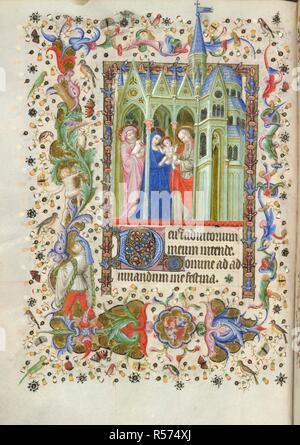 Deus in adiutorium
meum intende.
Domine ad ad
iuuandum me festina.
alamy
Image ID: R574XJ
www.alamy.com